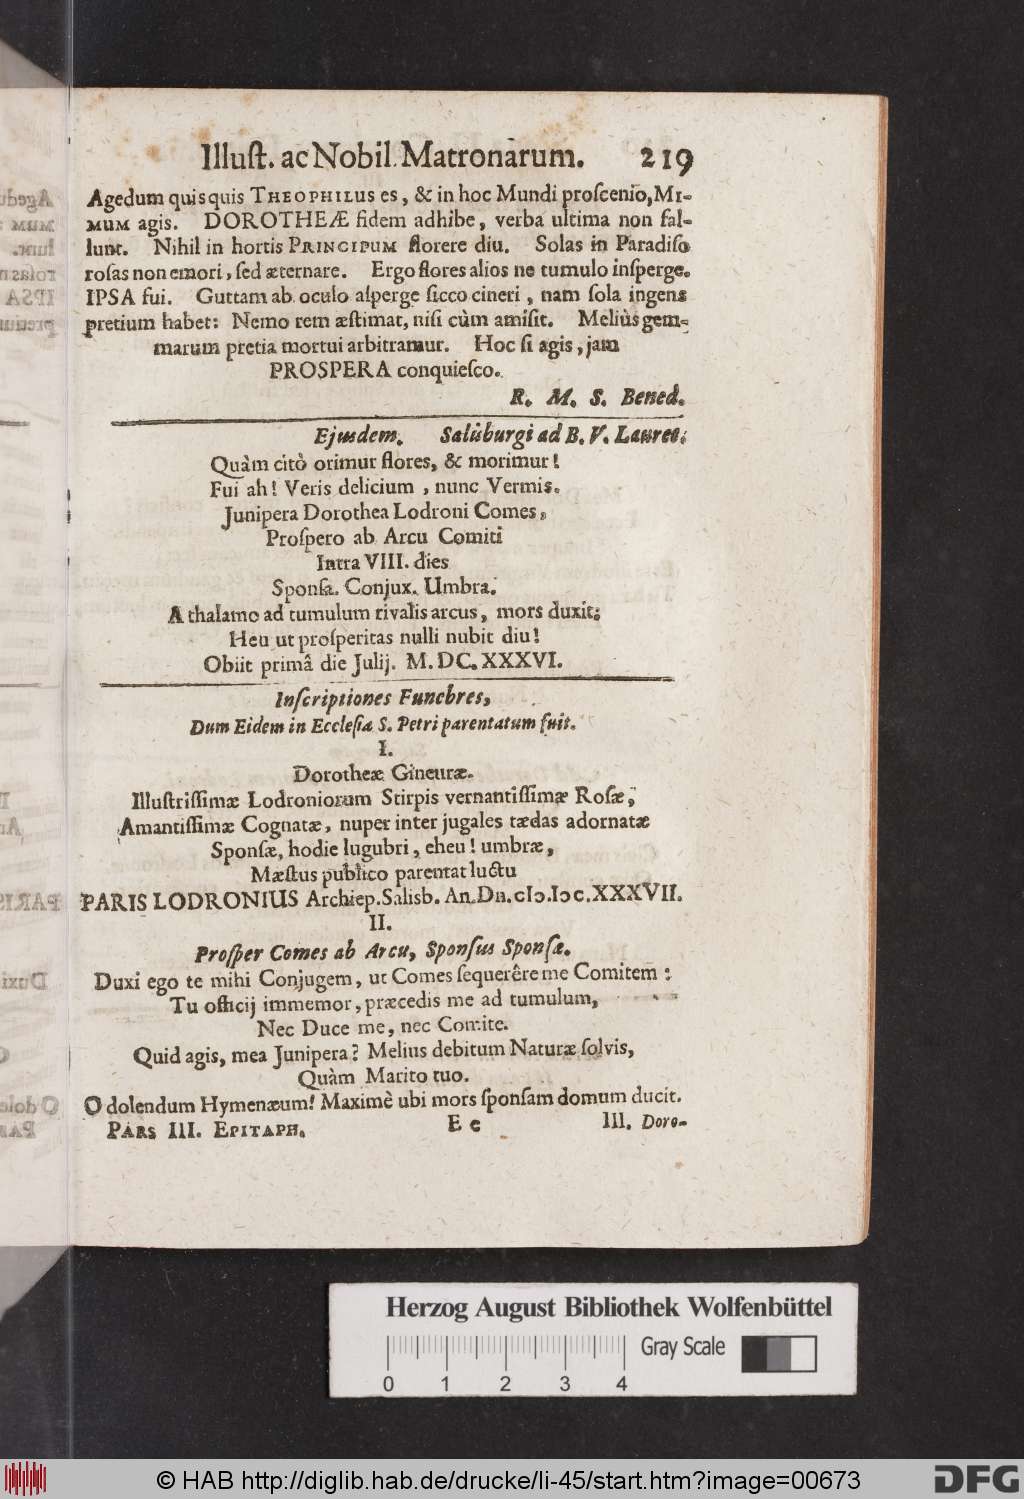 Illuſt. ac Nobil. Matronarum. 219
Agedum quisquis THEOPHILUS es, & in hoc Mundi proſcenio, MI-
MUM agis. DOROTHEÆ fidem adhibe, verba ultima non fal-
lunt. Nihil in hortis PRINCIPUM florere diu. Solas in Paradiſo
roſas non emori, ſed æternare. Ergo flores alios ne tumulo inſperge.
IPSA fui. Guttam ab oculo aſperge ſicco cineri, nam ſola ingens
pretium habet: Nemo rem æſtimat, niſi cùm amiſit. Meliùs gem-
marum pretia mortui arbitramur. Hoc ſi agis, jam
PROSPERA conquieſco.
R. M. S. Bened.
Ejusdem. Salisburgi ad B. V. Lauret:
Quàm citò orimur flores, & morimur!
Fui ah! Veris delicium, nunc Vermis.
Junipera Dorothea Lodroni Comes,
Proſpero ab Arcu Comiti
Intra VIII. dies
Sponſa. Conjux. Umbra.
A thalamo ad tumulum rivalis arcus, mors duxit:
Heu ut proſperitas nulli nubit diu!
Obiit primâ die Julij. M. DC. XXXVI.
Inſcriptiones Funebres,
Dum Eidem in Eccleſia S. Petri parentatum fuit.
I.
Dorotheæ Gineuræ.
Illuſtriſſimæ Lodroniorum Stirpis vernantiſſimæ Roſæ,
Amantiſſimæ Cognatæ, nuper inter jugales tædas adornatæ
Sponſæ, hodie lugubri, eheu! umbræ,
Mæſtus publico parentat luctu
PARIS LODRONIUS Archiep. Salisb. An. Dn. cIↄ.Iↄc.XXXVII.
II.
Proſper Comes ab Arcu, Sponſus Sponſæ.
Duxi ego te mihi Conjugem, ut Comes ſequerêre me Comitem:
Tu officij immemor, præcedis me ad tumulum,
Nec Duce me, nec Comite.
Quid agis, mea Junipera? Melius debitum Naturæ ſolvis,
Quàm Marito tuo.
O dolendum Hymenæum! Maximè ubi mors ſponſam domum ducit.
PARS III. EPITAPH. E e III. Doro-
Herzog August Bibliothek Wolfenbüttel
Gray Scale
0 1 2 3 4
© HAB http://diglib.hab.de/drucke/li-45/start.htm?image=00673
DFG